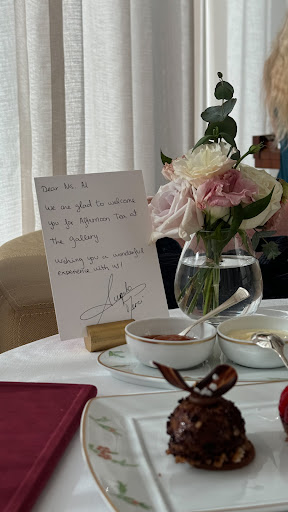 Dear Ms. N
We are glad to welcome
you for Afternoon Tea at
The Gallery
Wishing you a wonderful
experience with us!